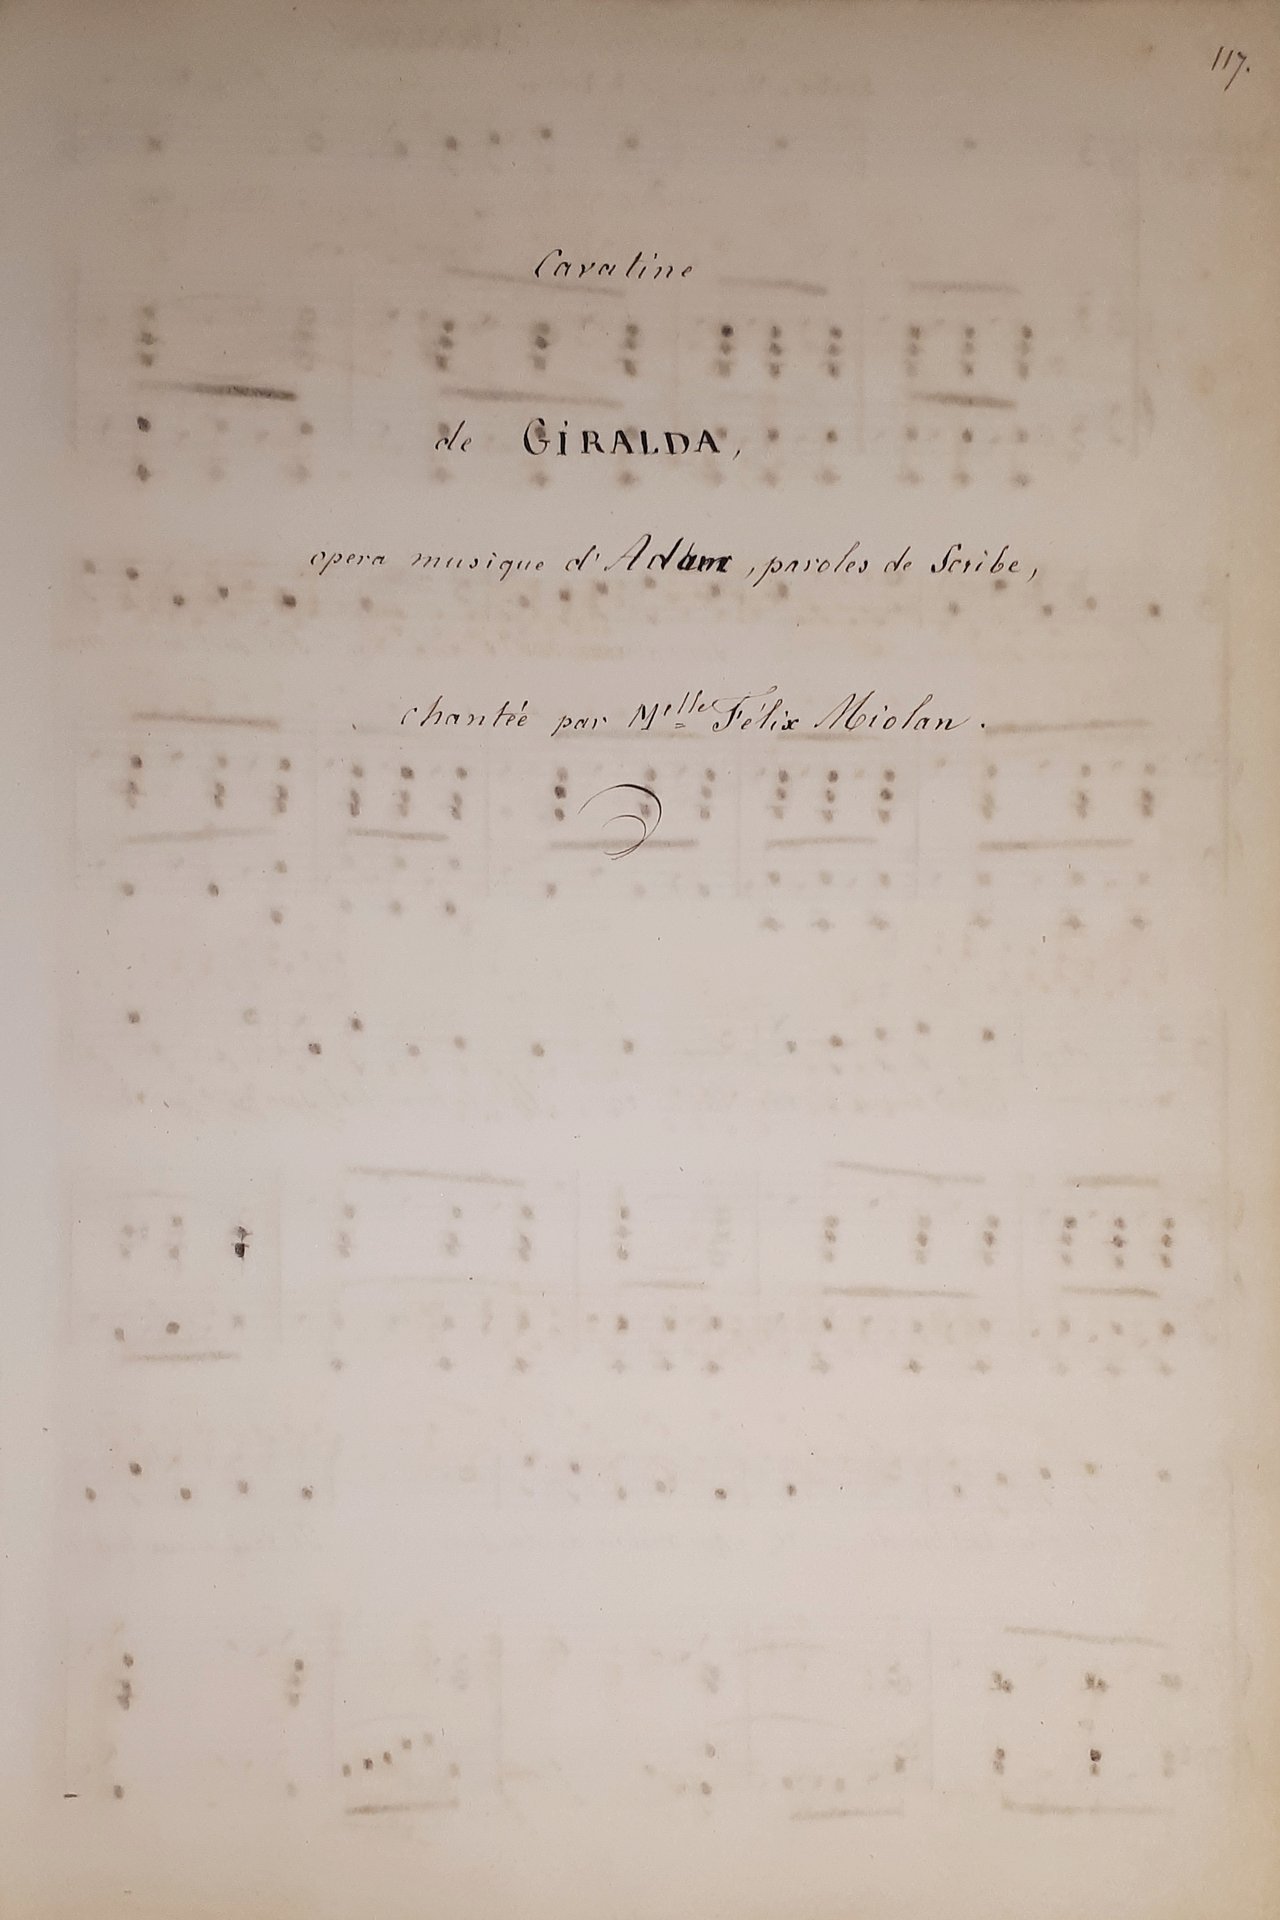 117.
Cavatine
de GiRALDA,
opera musique d'Adam, paroles de Scribe,
chantée par Melle Félix Miolan.